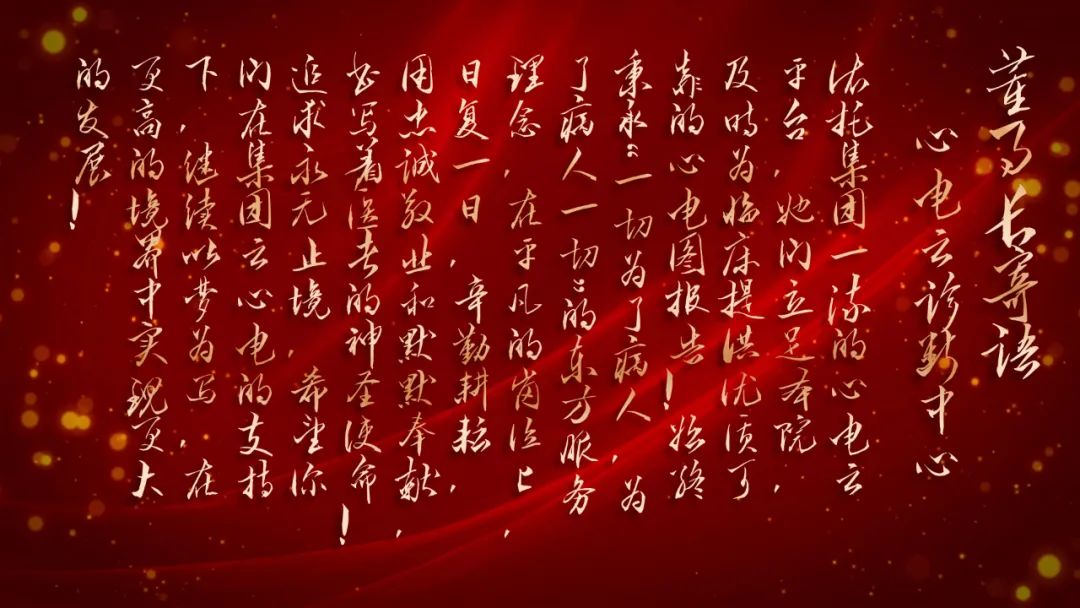 董事长寄语
心电云诊断中心
依托集团一流的心电云
平台，她们立足本院，
及时为临床提供优质可
靠的心电图报告！始终
秉承“一切为了病人，为
了病人一切”的东方服务
理念，在平凡的岗位上，
日复一日，辛勤耕耘，
用忠诚敬业和默默奉献，
书写着医者的神圣使命！
追求永无止境，希望你
们在集团云心电的支持
下，继续以梦为马，在
更高的境界中实现更大
的发展！